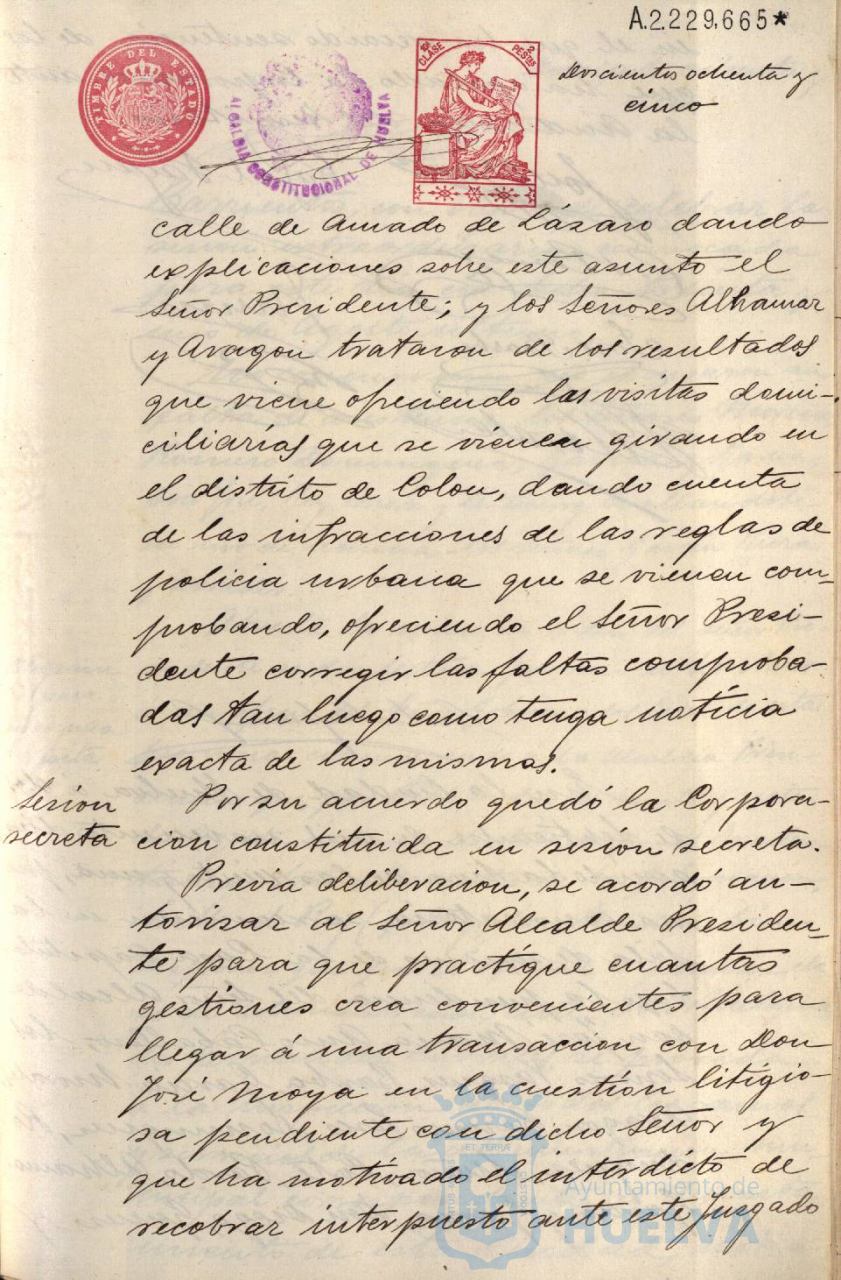 A.2.229.665*
TIMBRE DEL ESTADO
ALCALDIA CONSTITUCIONAL DE HUELVA
CLASE
2 PESETAS
Doscientos ochenta y
cinco
calle de Amado de Lázaro dando
explicaciones sobre este asunto el
Señor Presidente; y los Señores Alhamar
y Aragon trataron de los resultados
que viene ofreciendo las visitas domi-
ciliarías que se vienen girando en
el distrito de Colon, dando cuenta
de las infracciones de las reglas de
policia urbana que se vienen com-
probando, ofreciendo el Señor Presi-
dente corregir las faltas comproba-
das tan luego como tenga notícia
exacta de las mismas.
Sesion
secreta
Por su acuerdo quedó la Corpora-
cion constituida en sesion secreta.
Previa deliberacion, se acordó au-
torisar al Señor Alcalde Presiden-
te para que practíque cuantas
gestiones crea convenientes para
llegar á una transaccion con Don
José Moya en la cuestión litigio-
sa pendiente con dicho Señor y
que ha motivado el interdicto de
recobrar interpuesto ante este Juzgado
Ayuntamiento de
HUELVA